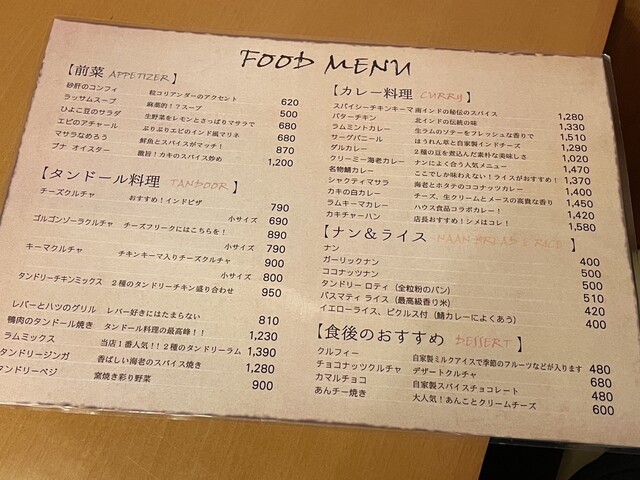 FOOD MENU
【前菜 APPETIZER】
砂肝のコンフィ 粒コリアンダーのアクセント 620
ラッサムスープ 麻薬的!?スープ 500
ひよこ豆のサラダ 生野菜をレモンとさっぱりマサラで 680
エビのアチャール ぷりぷりエビのインド風マリネ 680
マサラなめろう 鮮魚とスパイスがマッチ! 870
ブナ オイスター 激旨!カキのスパイス炒め 1,200
【タンドール料理 TANDOOR】
チーズクルチャ おすすめ!インドピザ 790
小サイズ 690
ゴルゴンゾーラクルチャ チーズフリークにはこちらを! 890
小サイズ 790
キーマクルチャ チキンキーマ入りチーズクルチャ 900
小サイズ 800
タンドリーチキンミックス 2種のタンドリーチキン盛り合わせ 950
レバーとハツのグリル レバー好きにはたまらない 810
鴨肉のタンドール焼き タンドール料理の最高峰!! 1,230
ラムミックス 当店1番人気!!2種のタンドリーラム 1,390
タンドリージンガ 香ばしい海老のスパイス焼き 1,280
タンドリーベジ 窯焼き彩り野菜 900
【カレー料理 CURRY】
スパイシーチキンキーマ 南インドの秘伝のスパイス 1,280
バターチキン 北インドの伝統の味 1,330
ラムミントカレー 生ラムのソテーをフレッシュな香りで 1,510
サーグパニール ほうれん草と自家製インドチーズ 1,290
ダルカレー 2種の豆を煮込んだ素朴な美味しさ 1,020
クリーミー海老カレー ナンによく合う人気メニュー 1,470
名物鯖カレー ここでしか味わえない!ライスがおすすめ! 1,370
シャクティマサラ 海老とホタテのココナッツカレー 1,400
カキの白カレー チーズ、生クリームとメースの高貴な香り 1,450
ラムキーマカレー ハウス食品コラボカレー! 1,420
カキチャーハン 店長おすすめ!シメはコレ! 1,580
【ナン&ライス NAAN BREAD & RICE】
ナン 400
ガーリックナン 500
ココナッツナン 500
タンドリー ロティ(全粒粉のパン) 510
バスマティ ライス(最高級香り米) 420
イエローライス、ピクルス付(鯖カレーによくあう) 400
【食後のおすすめ DESSERT】
クルフィー 自家製ミルクアイスで季節のフルーツなどが入ります 480
チョコナッツクルチャ デザートクルチャ 680
カマルチョコ 自家製スパイスチョコレート 480
あんチー焼き 大人気!あんことクリームチーズ 600